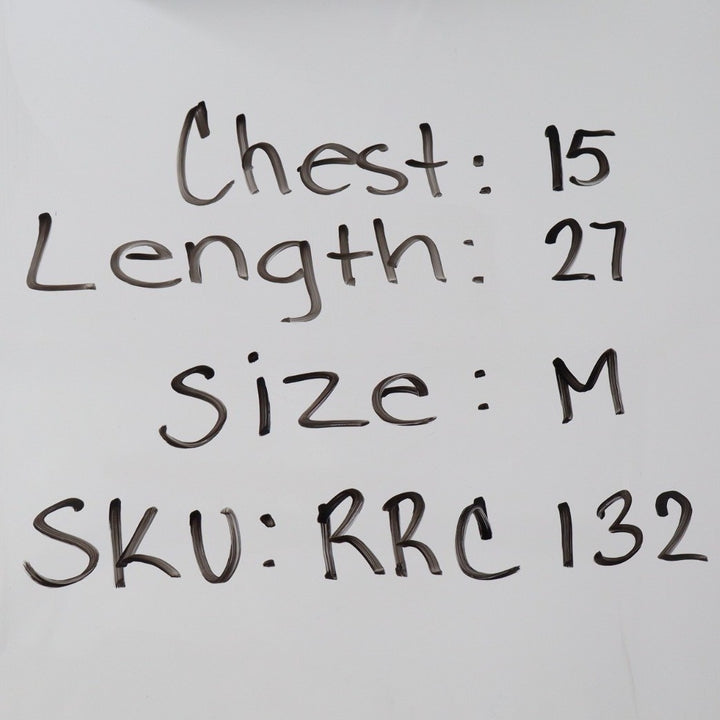 Chest: 15
Length: 27
Size: M
SKU: RRC 132